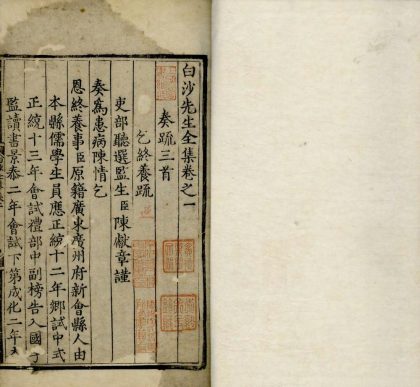 白沙先生全集卷之一
奏疏三首
乞終養疏
吏部聽選監生臣陳獻章謹
奏為患病陳情乞
恩終養事臣原籍廣東廣州府新會縣人由
本縣儒學生員應正統十二年鄉試中式
正統十三年會試禮部中副榜告入國子
監讀書景泰二年會試下第成化二年